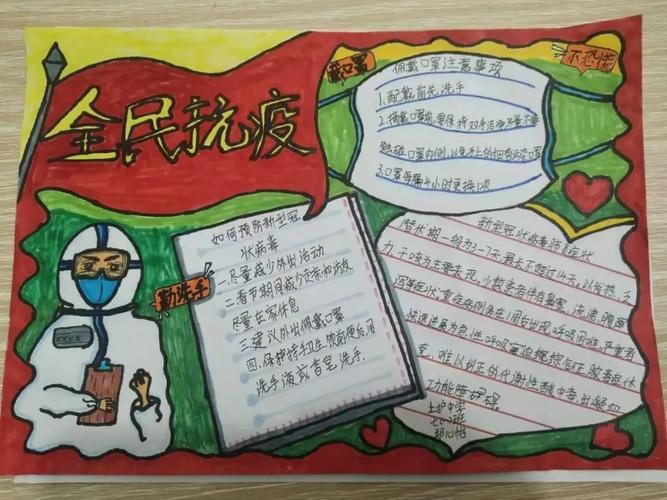 全民抗疫
戴口罩
不恐慌
佩戴口罩注意事项
1.配戴前先洗手
2.摘戴口罩前要保持双手洁净尽量不要
触碰口罩内侧,以免手上的细菌污染口罩
3.口罩每隔4小时更换1次
勤洗手
如何预防新型冠
状病毒
一.尽量减少外出活动
二.春节期间减少走亲和访友
尽量在家休息
三.建议外出佩戴口罩
四.保护持手卫生饭前便后用
洗手液或香皂洗手.
新型冠状病毒肺炎症状
潜伏期一般为3-7天最长不超过14天,以发热.乏
力,干咳为主要表现,少数患者伴有鼻塞,流涕,腹
泻等症状重症病例多在1周后出现呼吸困难,严重者
快速进展为急性呼吸窘迫综合征脓毒症休
克,难以纠正的代谢性酸中毒,出凝血
功能障碍.
上护中学